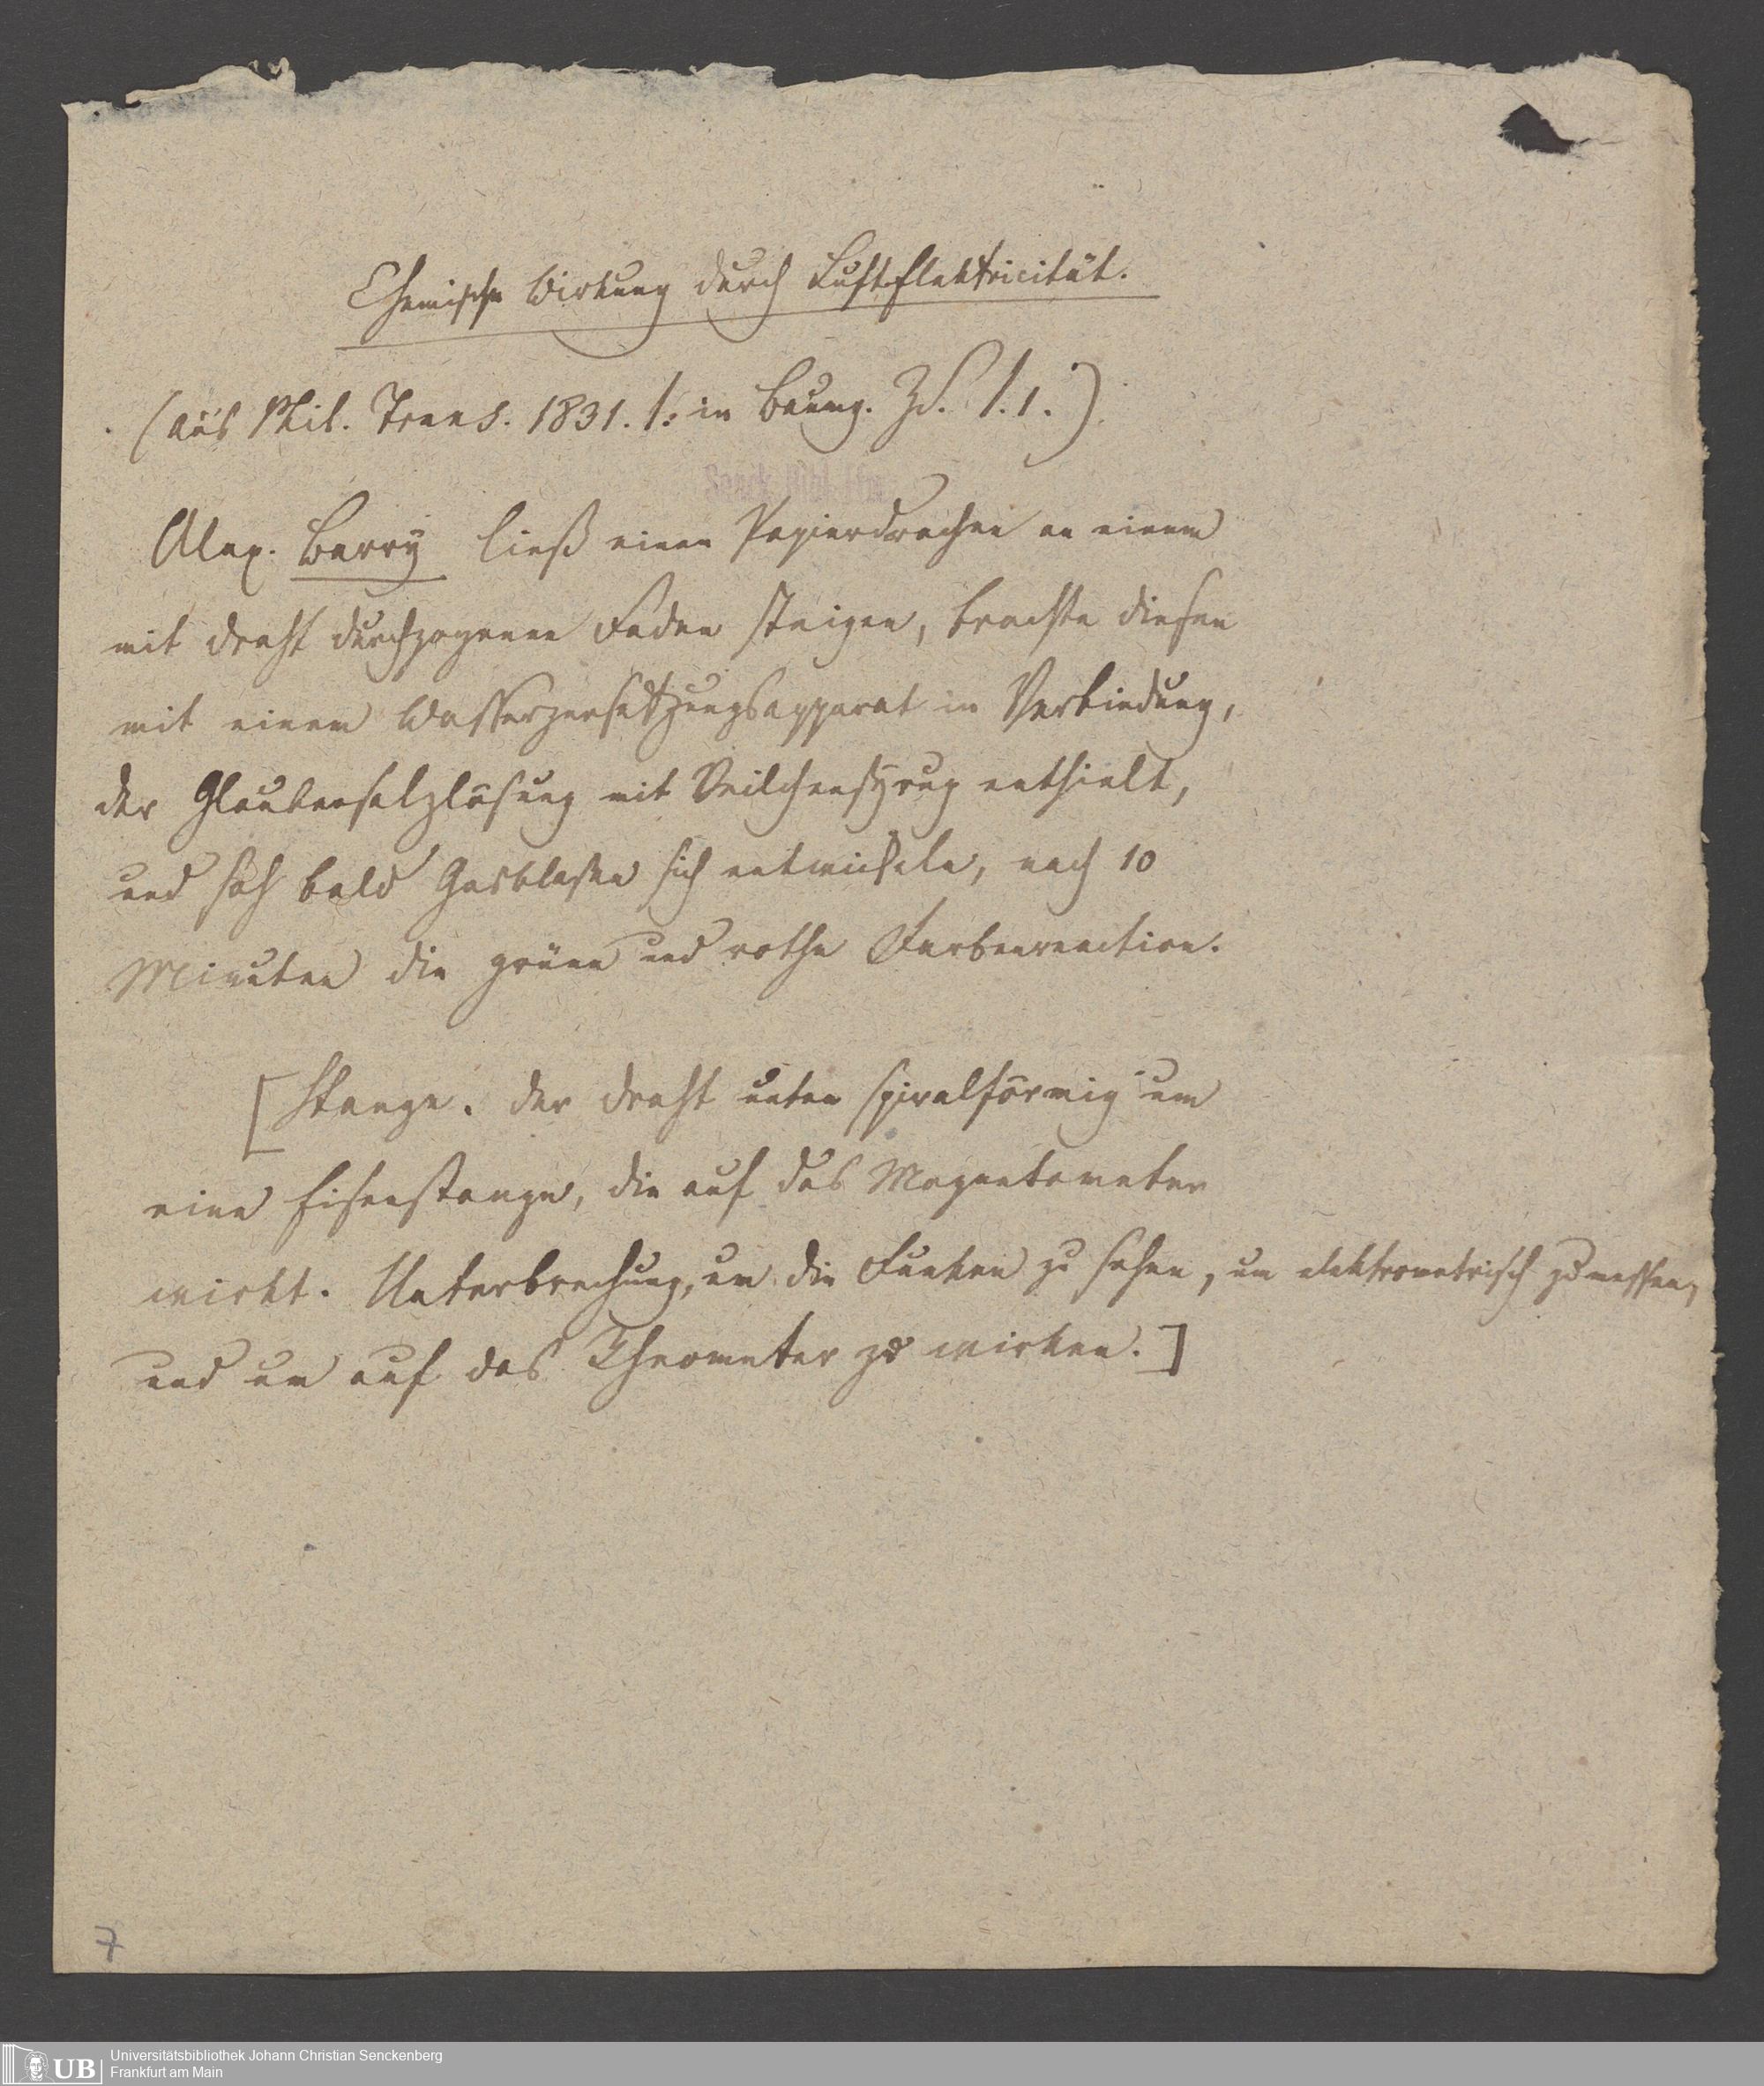 Chemische Wirkung durch Luftelektricität.
(aus Phil. Trans. 1831. 1: in Baumg. ZS. 1.1.)
Senck. Bibl. Ffm.
Alex. Barry ließ einen Papierdrachen an einem
mit Draht durchzogenen Faden steigen, brachte diesen
mit einem Wasserzersetzungsapparat in Verbindung,
der Glaubersalzlösung mit Veilchensyrup enthielt,
und sah bald Gasblasen sich entwickeln, nach 10
Minuten die grüne und rothe Farbenreaction.
[Stange. der Draht unten spiralförmig um
eine Eisenstange, die auf das Magnetometer
wirkt. Unterbrechung, um die Funken zu sehen, um elektrometrisch zu messen,
und um auf das Thermometer zu wirken.]
7
UB
Universitätsbibliothek Johann Christian Senckenberg
Frankfurt am Main